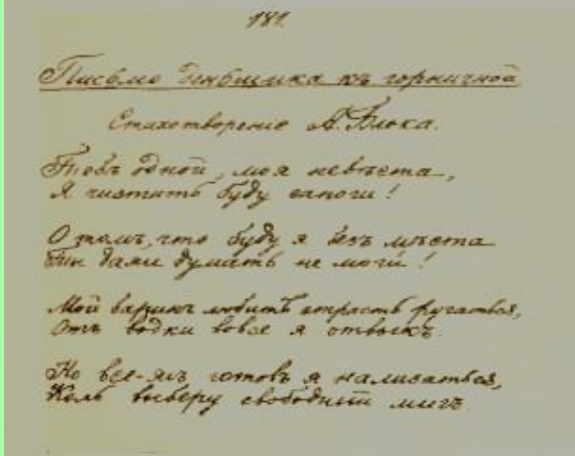 181.
Письмо деньщика къ горничной
Стихотворение А. Блока.
Тебѣ одной, моя невѣста,
Я чистить буду сапоги!
О томъ, что буду я безъ мѣста
Ты даже думать не моги!
Мой баринъ любитъ страсть ругаться,
Отъ водки вовсе я отвыкъ.
Но все-жъ готовъ я нализаться,
Коль выберу свободный мигъ